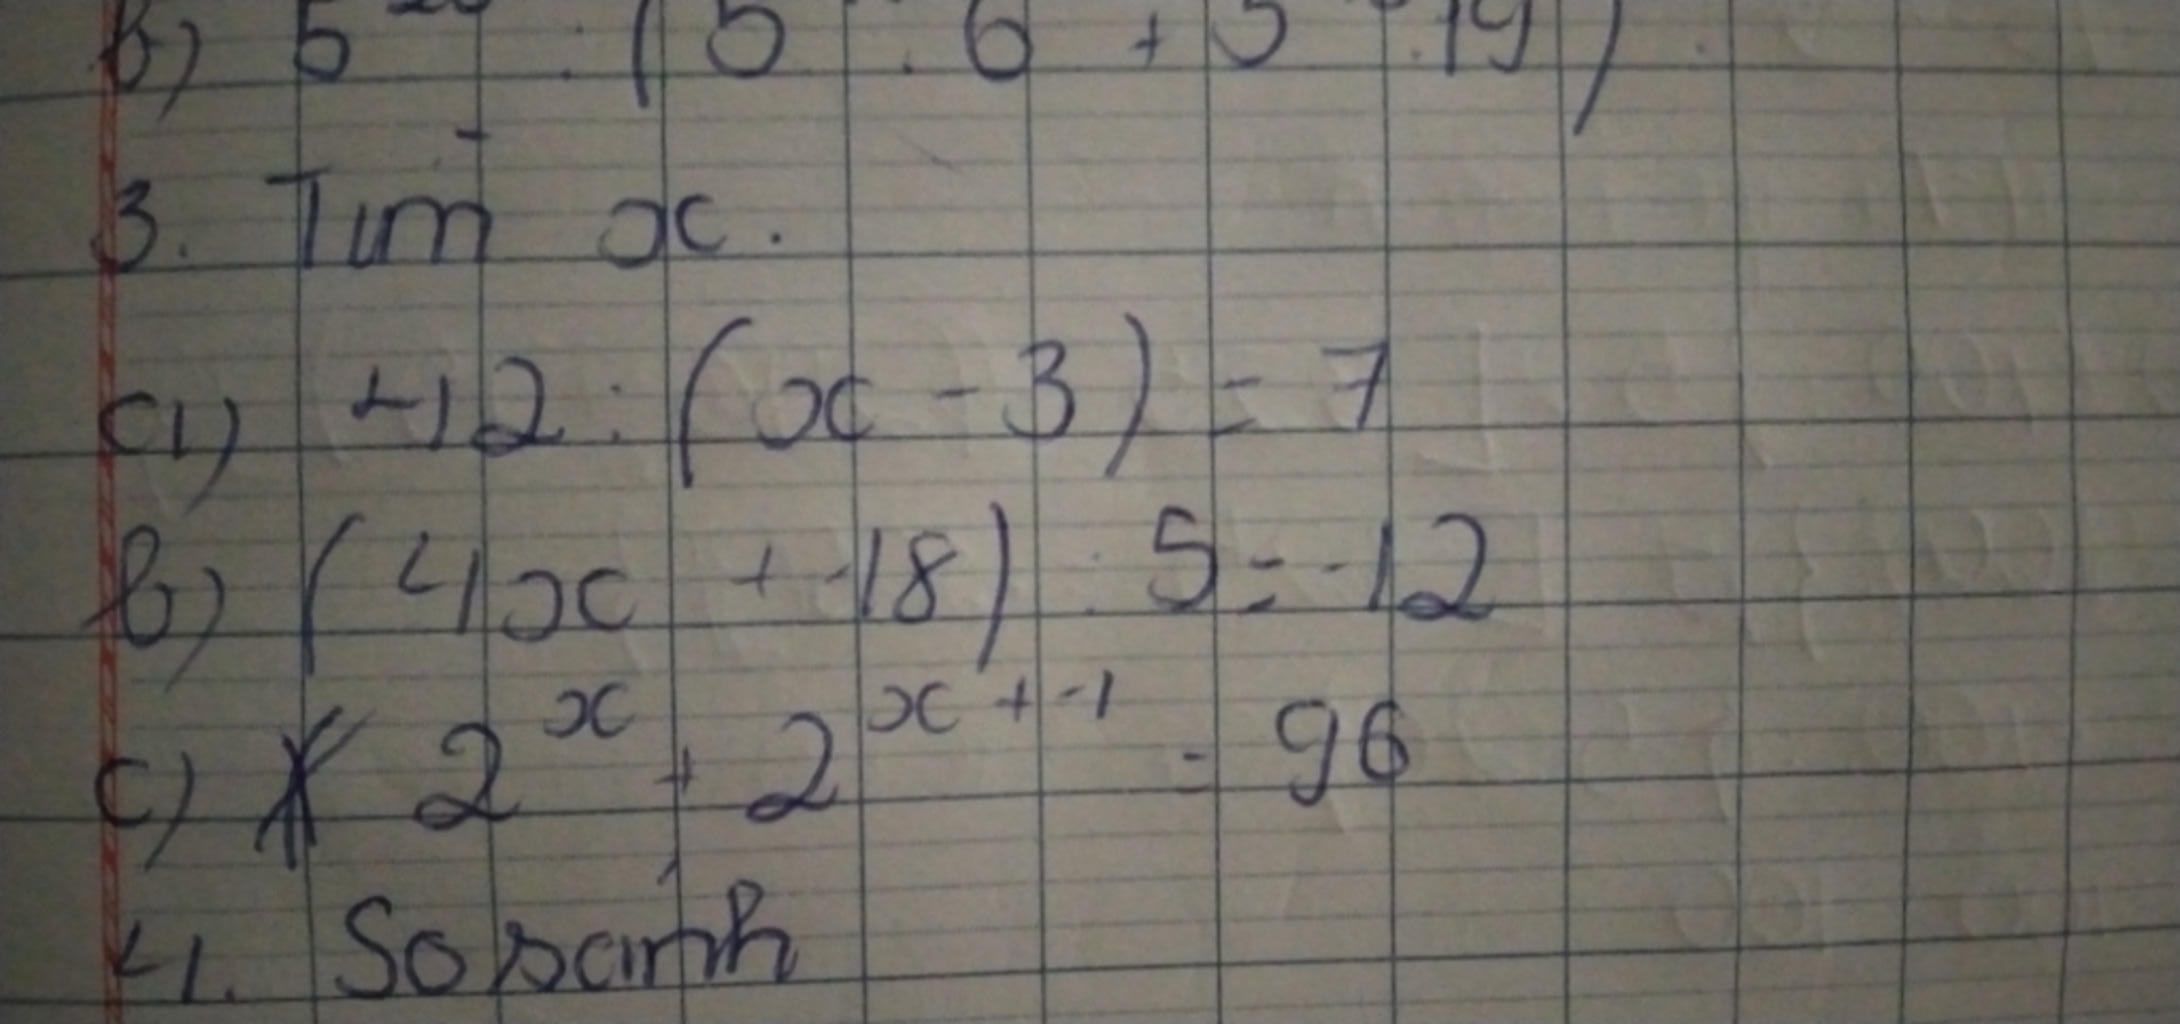 b) 5²⁰ : (5 . 6 + 5 . 19)
3. Tìm x.
a) 42 : (x - 3) = 7
b) (4x + 18) : 5 = 12
c) 2ˣ + 2ˣ⁺¹ = 96
4. So sánh